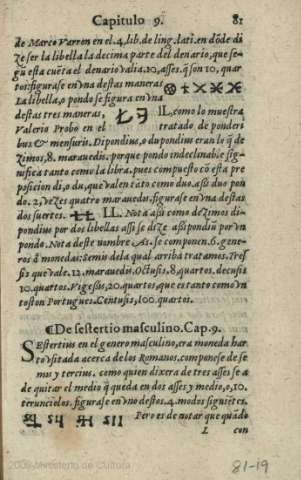 Capitulo 9. 81
de Marco Varron en el.4.lib.de ling.lati.en dõde di
ze ser la libella la decima parte del denario, que se-
gũ esta cuẽta el denario valia.10.asses.q̃ son 10.quar
tos: figurase en vna destas maneras
La libella, o pondo se figura en vna
destas tres maneras, IL, como lo muestra
Valerio Probo en el tratado de ponderi
bus & mensuris. Dipondius, o dupondius eran lo q̃ de
zimos, 8. marauedis. porque pondo indeclinable sig-
nifica tanto como la libra, pues compuesto cõ esta pre
posicion di, o du, que valen tãto como duo. assi duo pon
do. 2. vezes quatro marauedis. figurase en vna destas
dos suertes. LL. Nota assi como dezimos di-
pondius por dos libellas assi se dize assipondiũ por vn
pondo. Nota deste nombre As. se componen. 6. gene-
ros d̃ monedas: demis dela qual arriba tratamos. Tres-
sis que vale. 12. marauedis. Octusis. 8. quartos. decusis
10. quartos. Vigesus. 20. quartos, que es tanto como vn
toston Portugues. Centusis, 100. quartos.
¶De sestertio masculino. Cap. 9.
SEstertius en el genero masculino, era moneda har
to vsitada acerca de los Romanos. componese de se
mis y tercius. como quien dixera de tres asses se a
de quitar el medio q̃ queda en dos asses y medio, o, 10.
teruncielos. figurase en vno destos. 4. modos siguiẽtes.
Pero es de notar que quãdo
L con
2009 Ministerio de Cultura
81-19